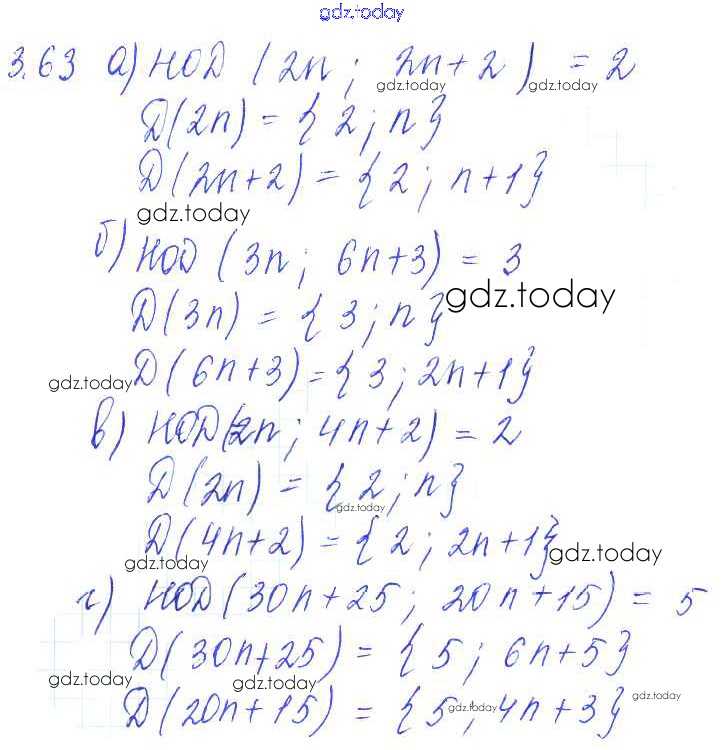 gdz.today
3.63 а) НОД (2n; 2n+2) = 2
gdz.today gdz.today
D(2n) = {2; n}
D(2n+2) = {2; n+1}
gdz.today
б) НОД (3n; 6n+3) = 3
gdz.today
D(3n) = {3; n}
D(6n+3) = {3; 2n+1}
gdz.today
в) НОД(2n; 4n+2) = 2
D(2n) = {2; n}
gdz.today
D(4n+2) = {2; 2n+1}
gdz.today gdz.today
г) НОД(30n+25; 20n+15) = 5
D(30n+25) = {5; 6n+5}
gdz.today gdz.today
D(20n+15) = {5; 4n+3}
gdz.today gdz.today